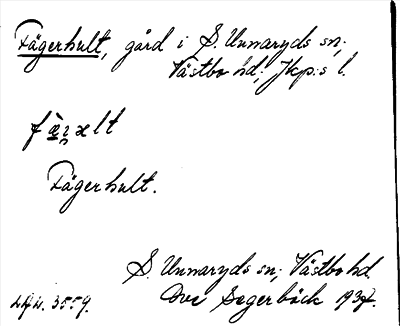 Fägerhult, gård i S. Unnaryds sn;
Västbo hd; Jkp:s l.
Fägerhult.
S. Unnaryds sn; Västbo hd.
Ove Segerbäck 1937.